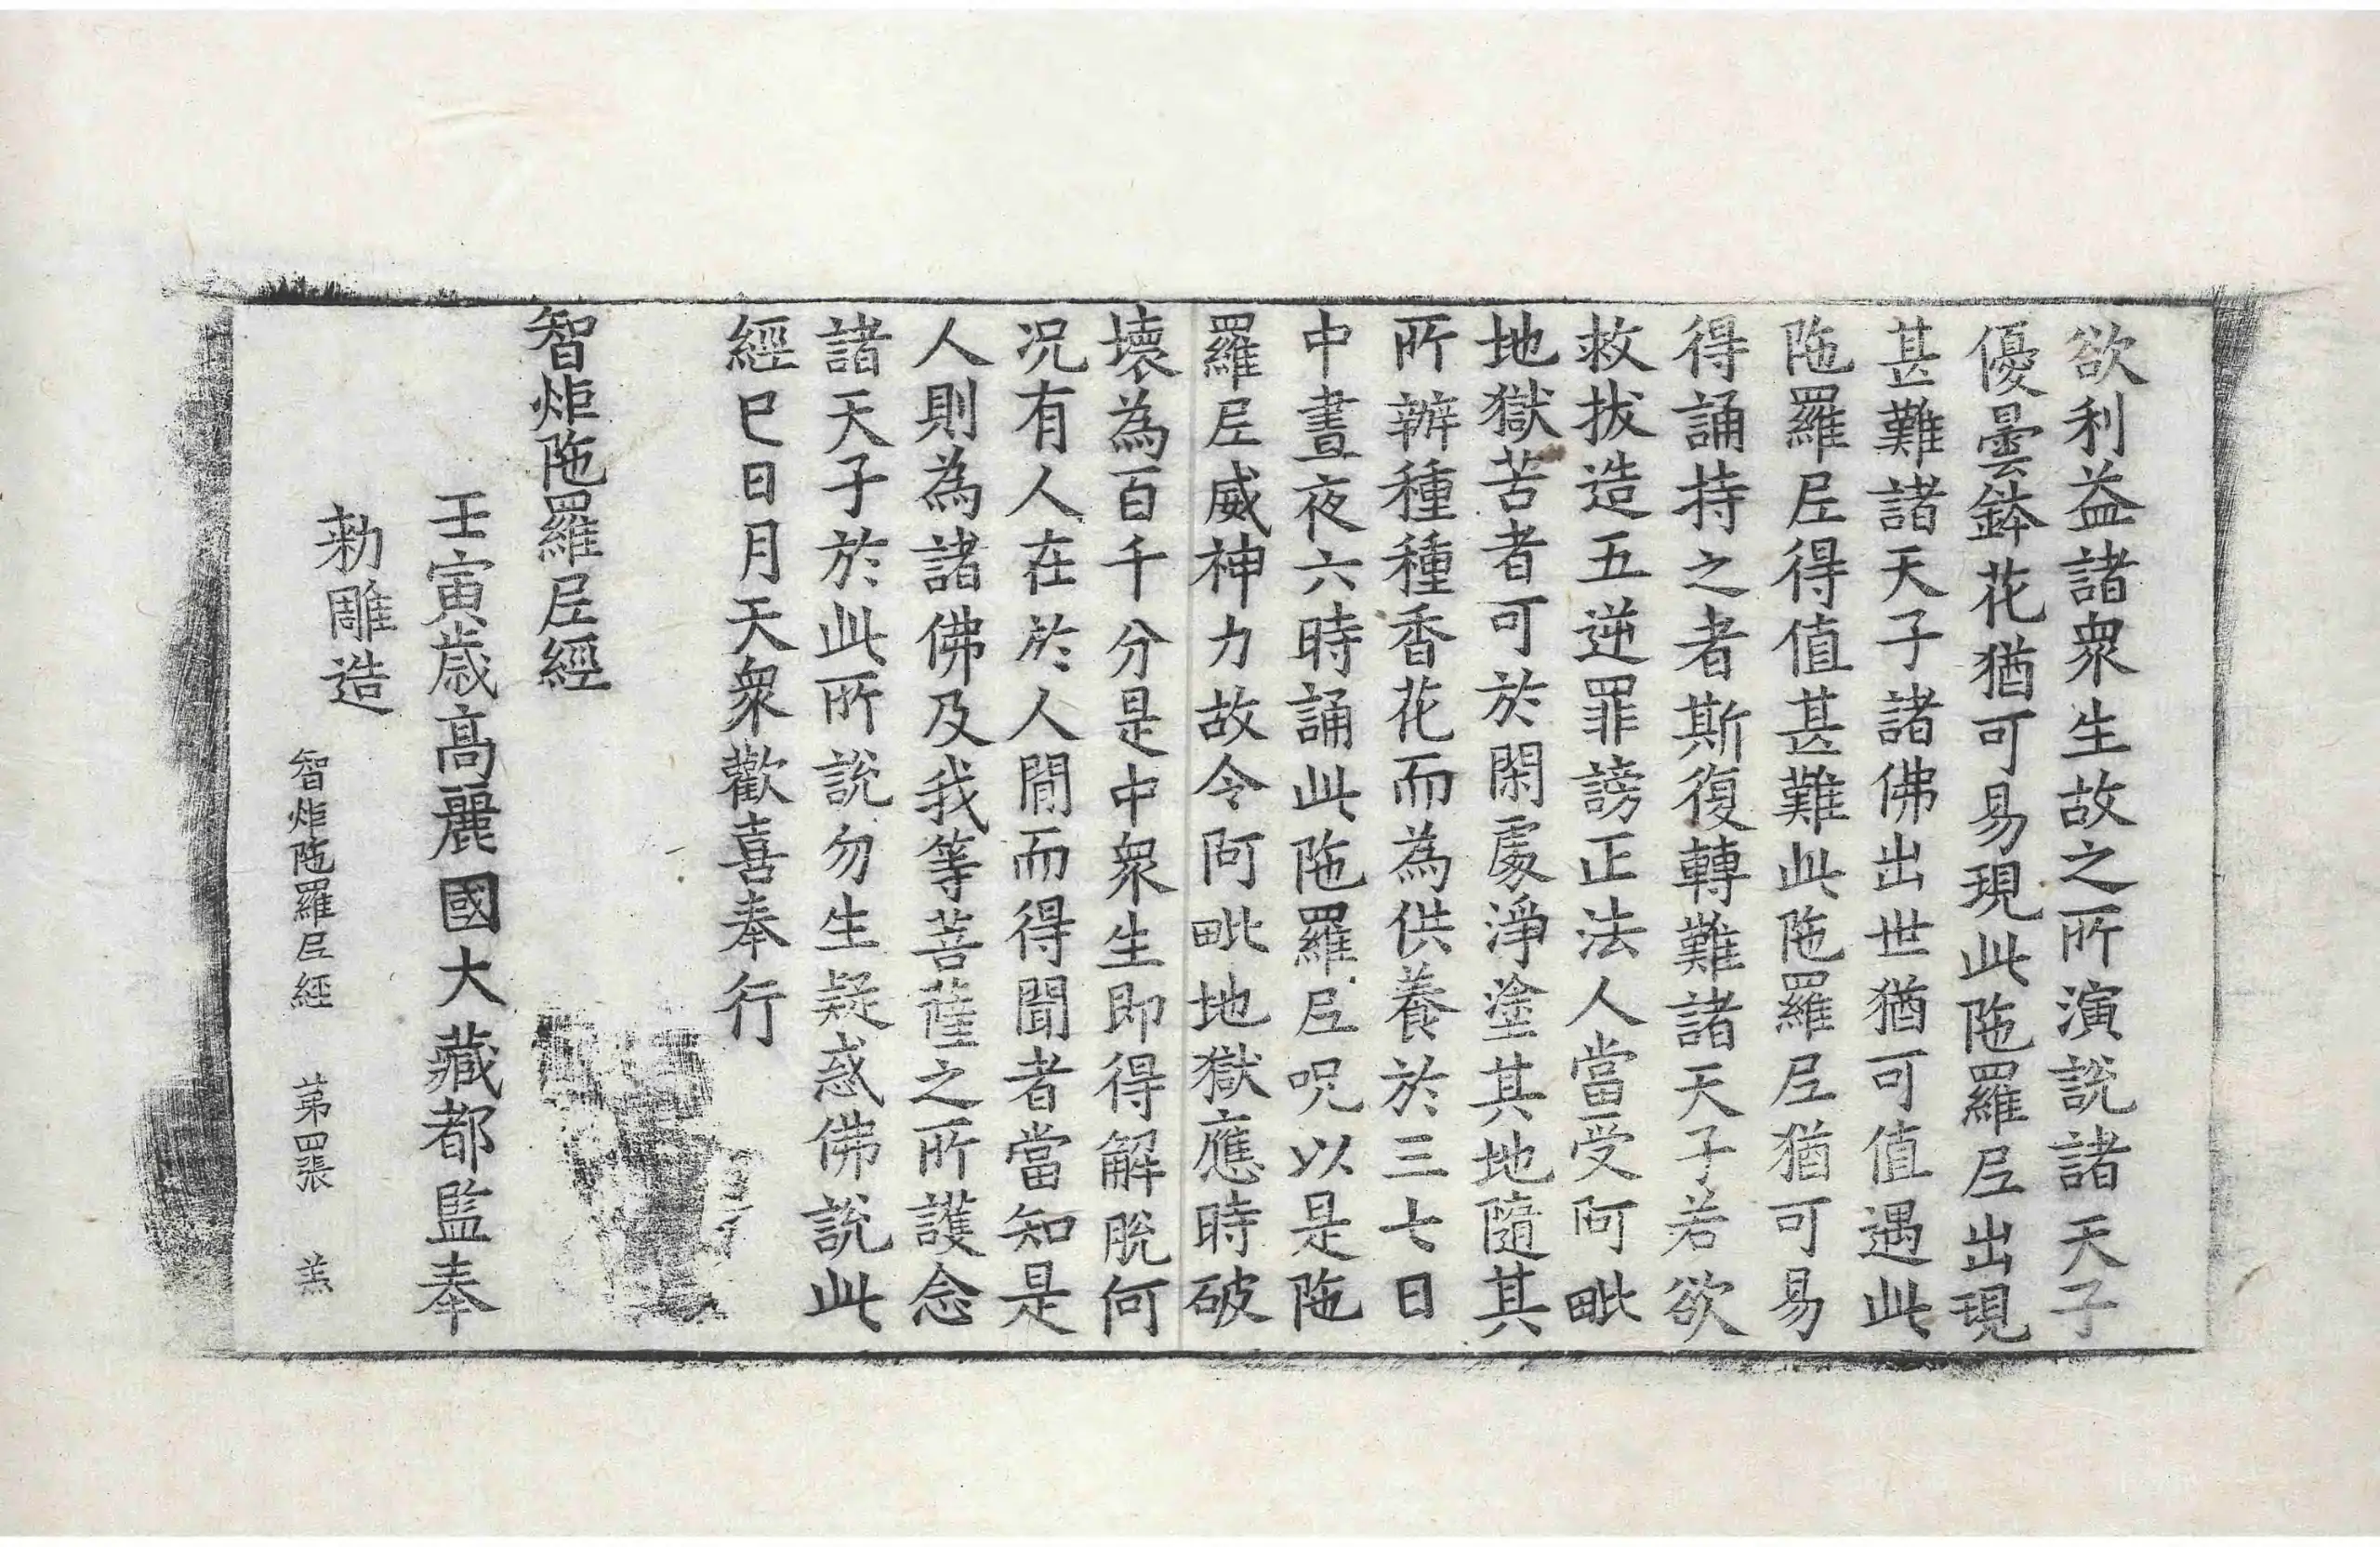 欲利益諸衆生故之所演說諸天子
優曇鉢花猶可易現此陁羅尼出現
甚難諸天子諸佛出世猶可值遇此
陁羅尼得值甚難此陁羅尼猶可易
得誦持之者斯復轉難諸天子若欲
救拔造五逆罪謗正法人當受阿毗
地獄苦者可於閑處淨塗其地隨其
所辦種種香花而為供養於三七日
中晝夜六時誦此陁羅尼呪以是陁
羅尼威神力故令阿毗地獄應時破
壞為百千分是中衆生即得解脫何
况有人在於人閒而得聞者當知是
人則為諸佛及我等菩薩之所護念
諸天子於此所說勿生疑惑佛說此
經已日月天衆歡喜奉行
智炬陁羅尼經
壬寅歲高麗國大藏都監奉
勑雕造
智炬陁羅尼經 第四張 羔